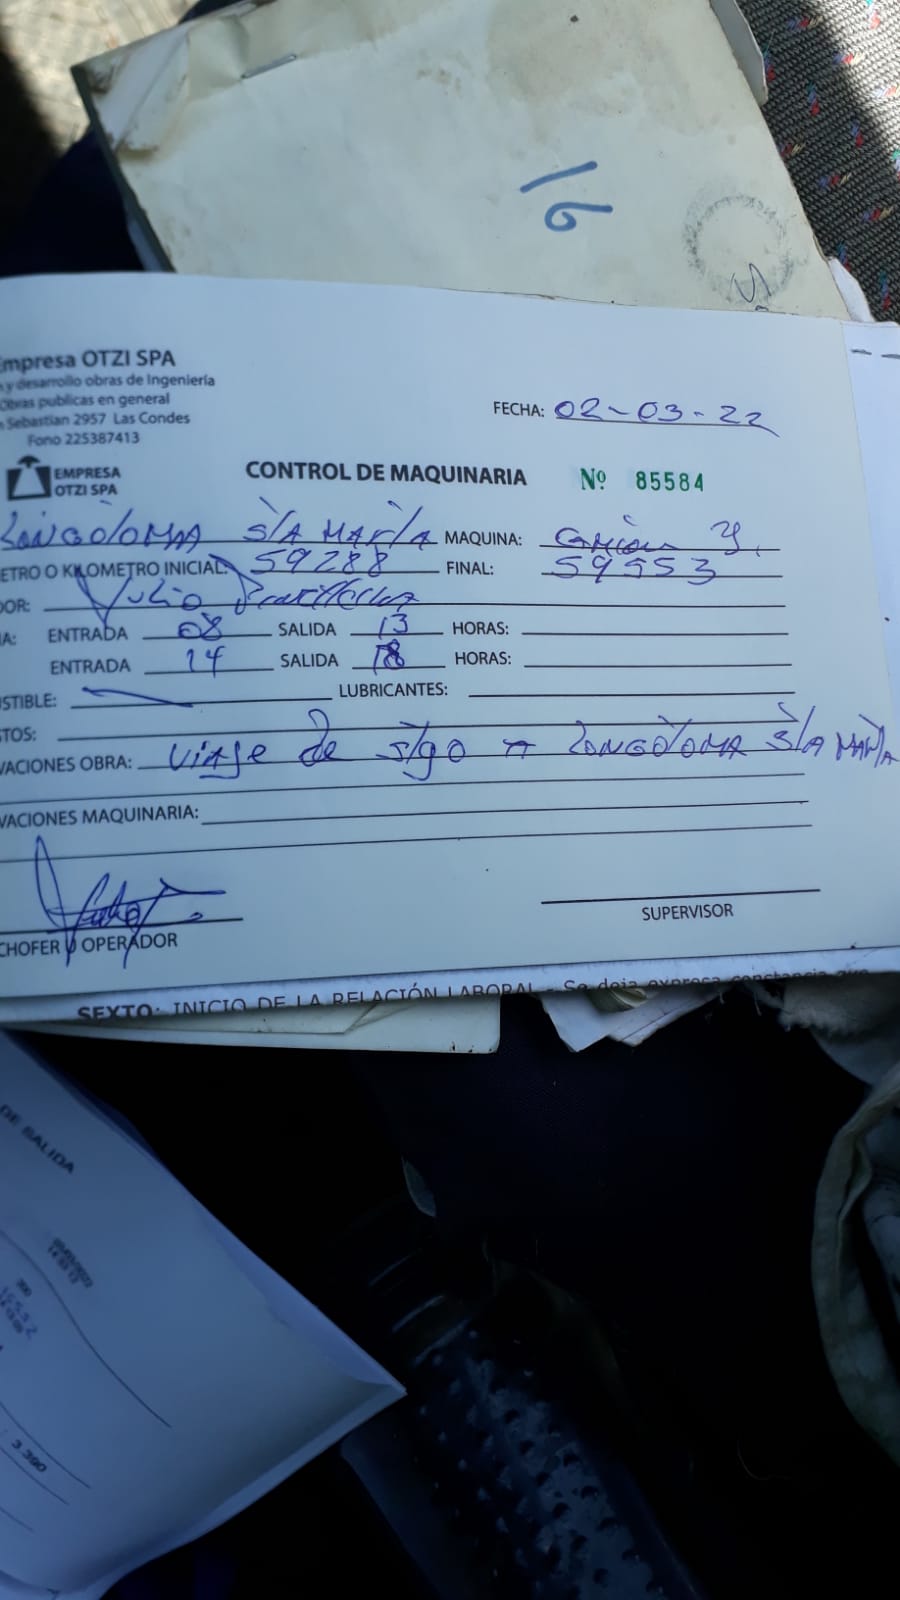 16
Empresa OTZI SPA
y desarrollo obras de Ingeniería
Obras publicas en general
Sebastian 2957 Las Condes
Fono 225387413
FECHA: 02-03-22
EMPRESA
OTZI SPA
CONTROL DE MAQUINARIA Nº 85584
LONGOTOMA S/A MARIA MAQUINA: Camión
ETRO O KILOMETRO INICIAL: 59288 FINAL: 59553
DOR: Julio
A: ENTRADA 08 SALIDA 13 HORAS:
ENTRADA 14 SALIDA 18 HORAS:
STIBLE: LUBRICANTES:
TOS:
VACIONES OBRA: Viaje de S/go A LONGOTOMA S/A MARIA
VACIONES MAQUINARIA:
CHOFER U OPERADOR
SUPERVISOR
SEXTO: INICIO DE LA RELACIÓN LABORAL.- Se deja expresa constancia que
DE SALIDA
3.390